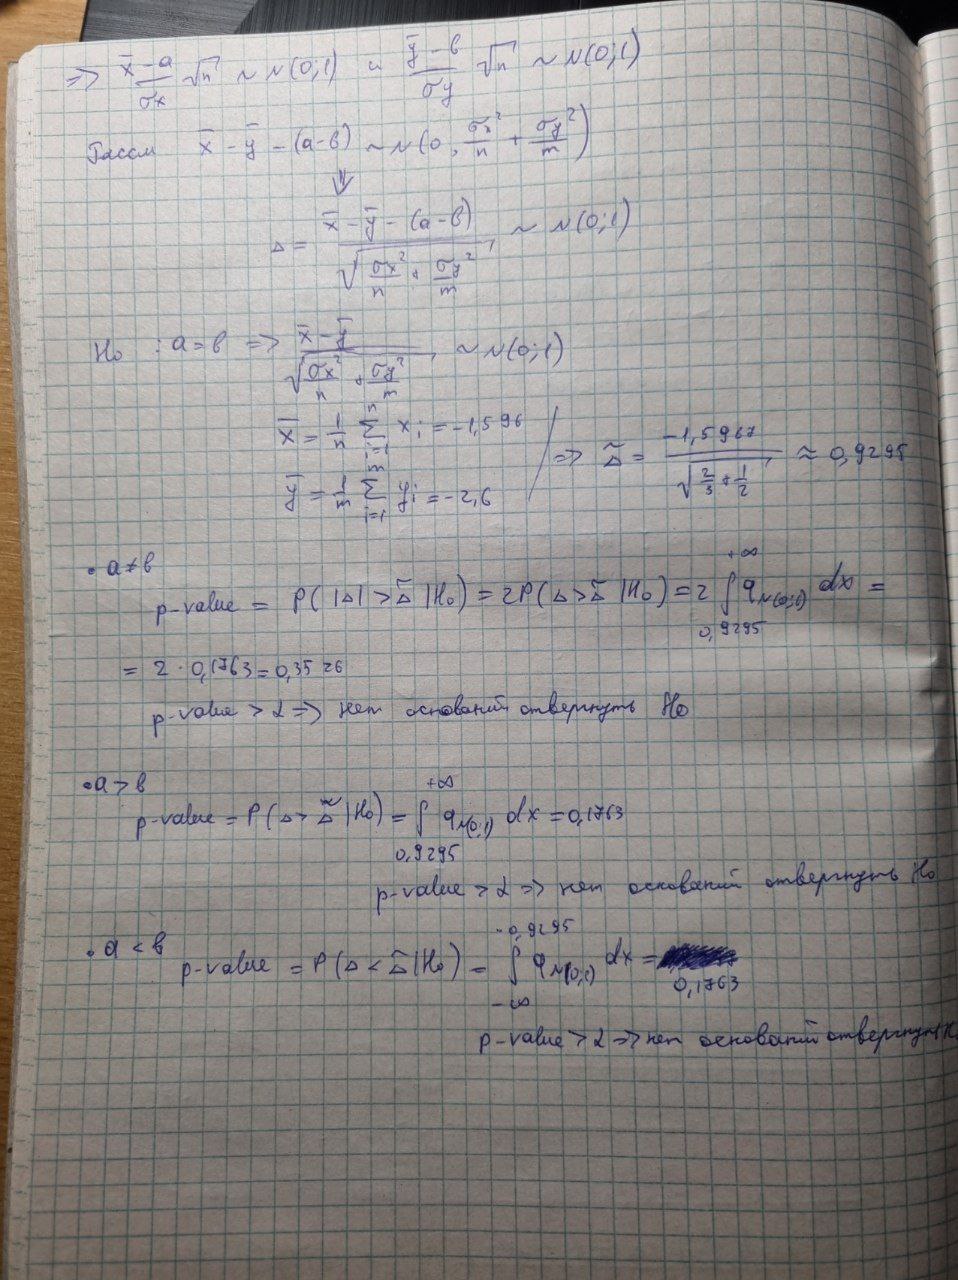 => (x̄ - a)/σx √n ~ N(0;1) и (ȳ - b)/σy √n ~ N(0;1)
Рассм x̄ - ȳ - (a-b) ~ N(0, σx²/n + σy²/m)
⇓
Δ = (x̄ - ȳ - (a-b))/√(σx²/n + σy²/m) ~ N(0;1)
H₀ : a = b => (x̄ - ȳ)/√(σx²/n + σy²/m) ~ N(0;1)
x̄ = 1/n Σ_{i=1}^{n} xi = -1,596
ȳ = 1/m Σ_{i=1}^{m} yi = -2,6
=> Δ̃ = -1,5967/√(2/3 + 1/2) ≈ 0,9295
• a ≠ b
p-value = P(|Δ| > Δ̃ | H₀) = 2P(Δ > Δ̃ | H₀) = 2 ∫_{0,9295}^{+∞} q_{N(0;1)} dx =
= 2 · 0,1763 = 0,3526
p-value > α => нет оснований отвергнуть H₀
• a > b
p-value = P(Δ > Δ̃ | H₀) = ∫_{0,9295}^{+∞} q_{N(0;1)} dx = 0,1763
p-value > α => нет оснований отвергнуть H₀
• a < b
p-value = P(Δ < Δ̃ | H₀) = ∫_{-∞}^{-0,9295} q_{N(0;1)} dx = 0,1763
p-value > α => нет оснований отвергнуть H